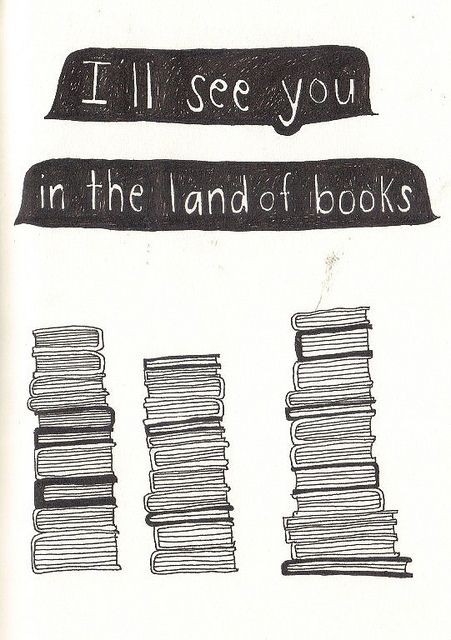 I'll see you
in the land of books